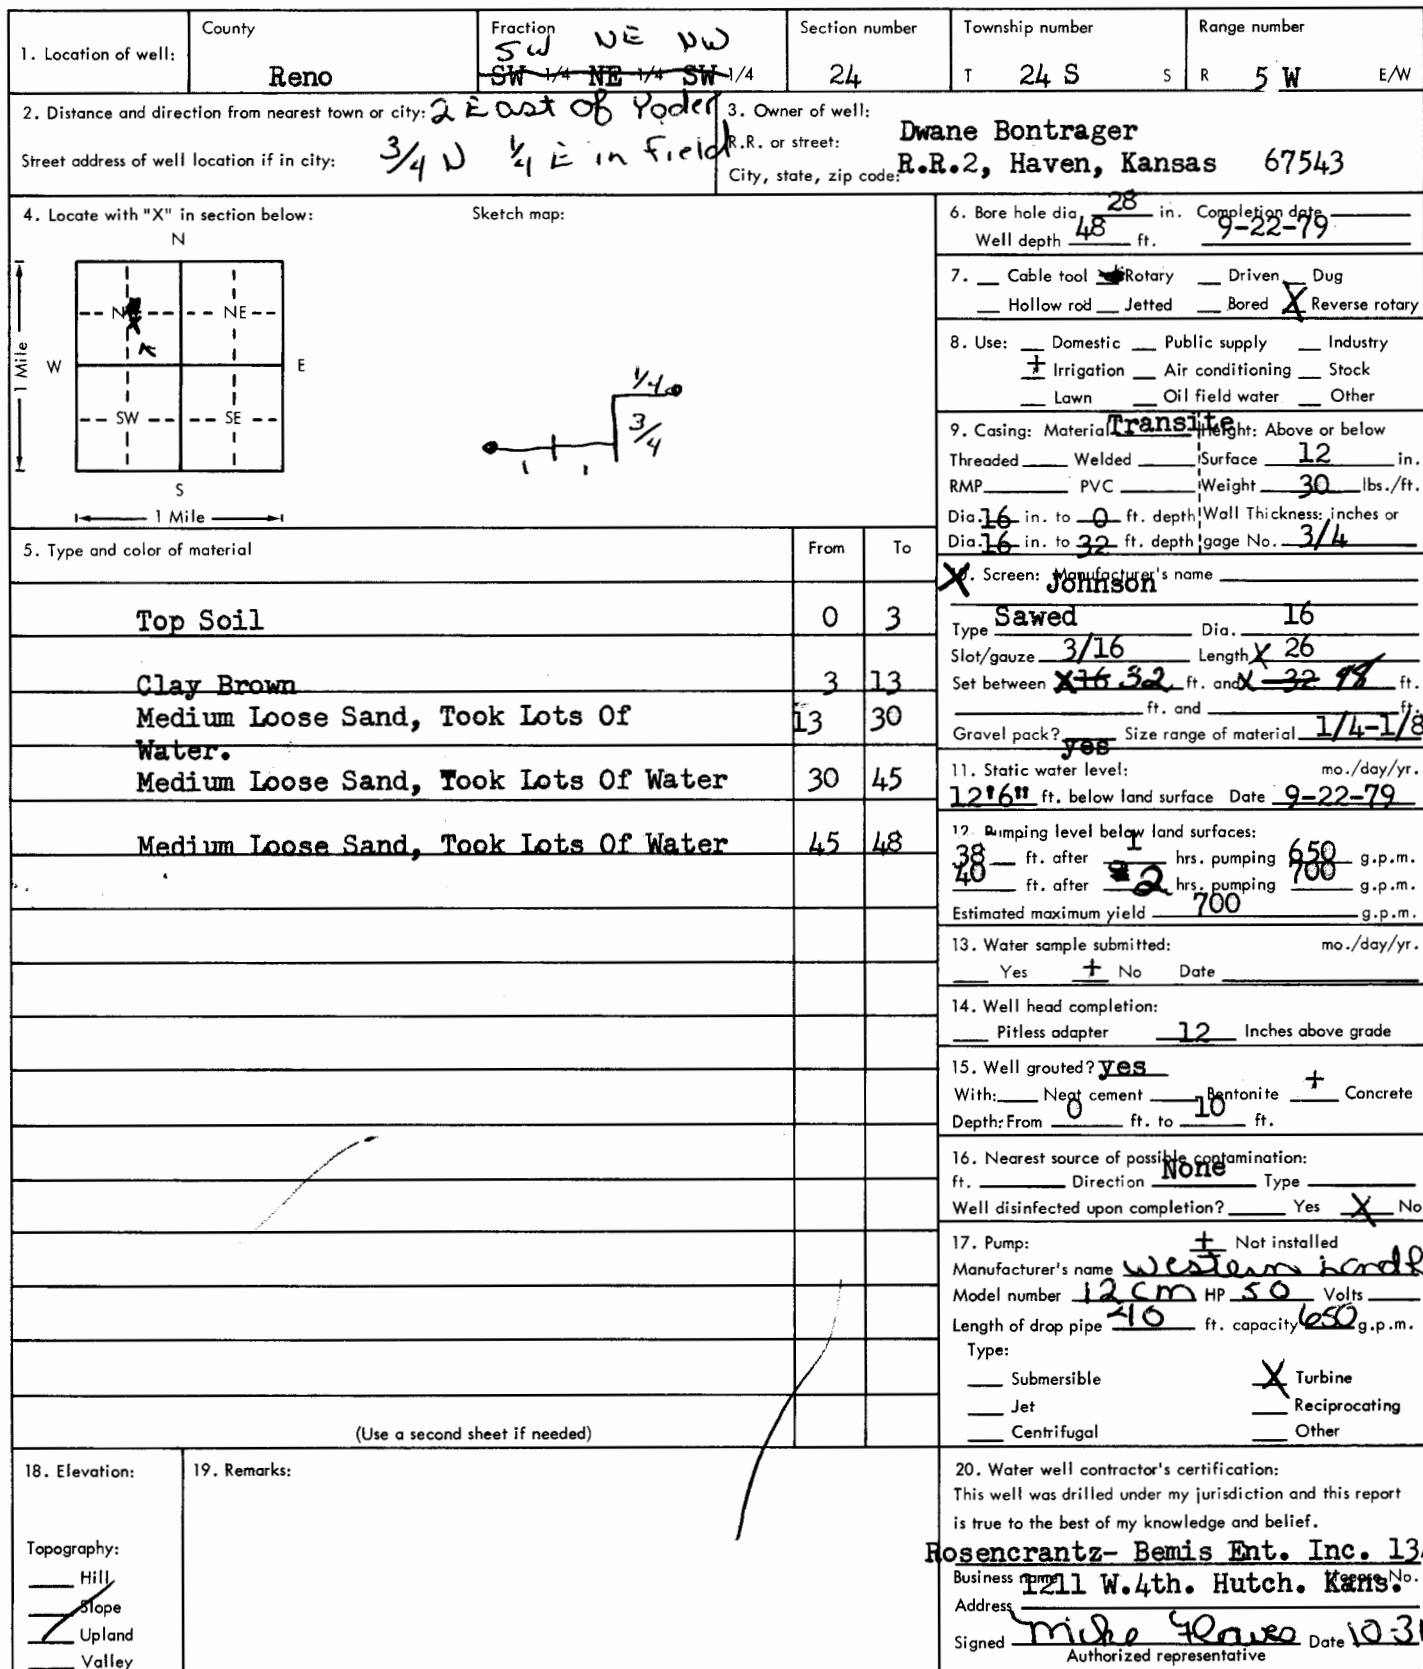 1. Location of well:
County
Reno
Fraction
SW NE NW
SW 1/4 NE 1/4 SW 1/4
Section number
24
Township number
T 24 S S
Range number
R 5 W E/W
2. Distance and direction from nearest town or city: 2 East of Yoder
Street address of well location if in city: 3/4 N 1/4 E in field
3. Owner of well: Dwane Bontrager
R.R. or street: R.R.2, Haven, Kansas 67543
City, state, zip code:
4. Locate with "X" in section below:
N
NE
X
W E
1 Mile
SW SE
S
1 Mile
Sketch map:
1/4
3/4
1 1
5. Type and color of material From To
Top Soil 0 3
Clay Brown 3 13
Medium Loose Sand, Took Lots Of 13 30
Water.
Medium Loose Sand, Took Lots Of Water 30 45
Medium Loose Sand, Took Lots Of Water 45 48
(Use a second sheet if needed)
6. Bore hole dia. 28 in. Completion date
Well depth 48 ft. 9-22-79
7. Cable tool Rotary Driven Dug
Hollow rod Jetted Bored X Reverse rotary
8. Use: Domestic Public supply Industry
+ Irrigation Air conditioning Stock
Lawn Oil field water Other
9. Casing: Material Transite Height: Above or below
Threaded Welded Surface 12 in.
RMP PVC Weight 30 lbs./ft.
Dia. 16 in. to 0 ft. depth Wall Thickness: inches or
Dia. 16 in. to 32 ft. depth gage No. 3/4
X Screen: Manufacturer's name
Johnson
Type Sawed Dia. 16
Slot/gauze 3/16 Length X 26
Set between X 16 32 ft. and X 32 48 ft.
ft. and ft.
Gravel pack? yes Size range of material 1/4-1/8
11. Static water level: mo./day/yr.
12'6" ft. below land surface Date 9-22-79
12. Pumping level below land surfaces:
38 ft. after 1 hrs. pumping 650 g.p.m.
40 ft. after 2 hrs. pumping 700 g.p.m.
Estimated maximum yield 700 g.p.m.
13. Water sample submitted: mo./day/yr.
Yes + No Date
14. Well head completion:
Pitless adapter 12 Inches above grade
15. Well grouted? yes
With: Neat cement Bentonite + Concrete
Depth: From 0 ft. to 10 ft.
16. Nearest source of possible contamination:
ft. Direction None Type
Well disinfected upon completion? Yes X No
17. Pump: + Not installed
Manufacturer's name Western
Model number 12 CM HP 50 Volts
Length of drop pipe 40 ft. capacity 650 g.p.m.
Type:
Submersible X Turbine
Jet Reciprocating
Centrifugal Other
18. Elevation:
Topography:
Hill
Slope
Upland
Valley
19. Remarks:
20. Water well contractor's certification:
This well was drilled under my jurisdiction and this report
is true to the best of my knowledge and belief.
Rosencrantz- Bemis Ent. Inc. 13
Business name No.
1211 W.4th. Hutch. Kans.
Address
Signed Mike Date 10-31
Authorized representative